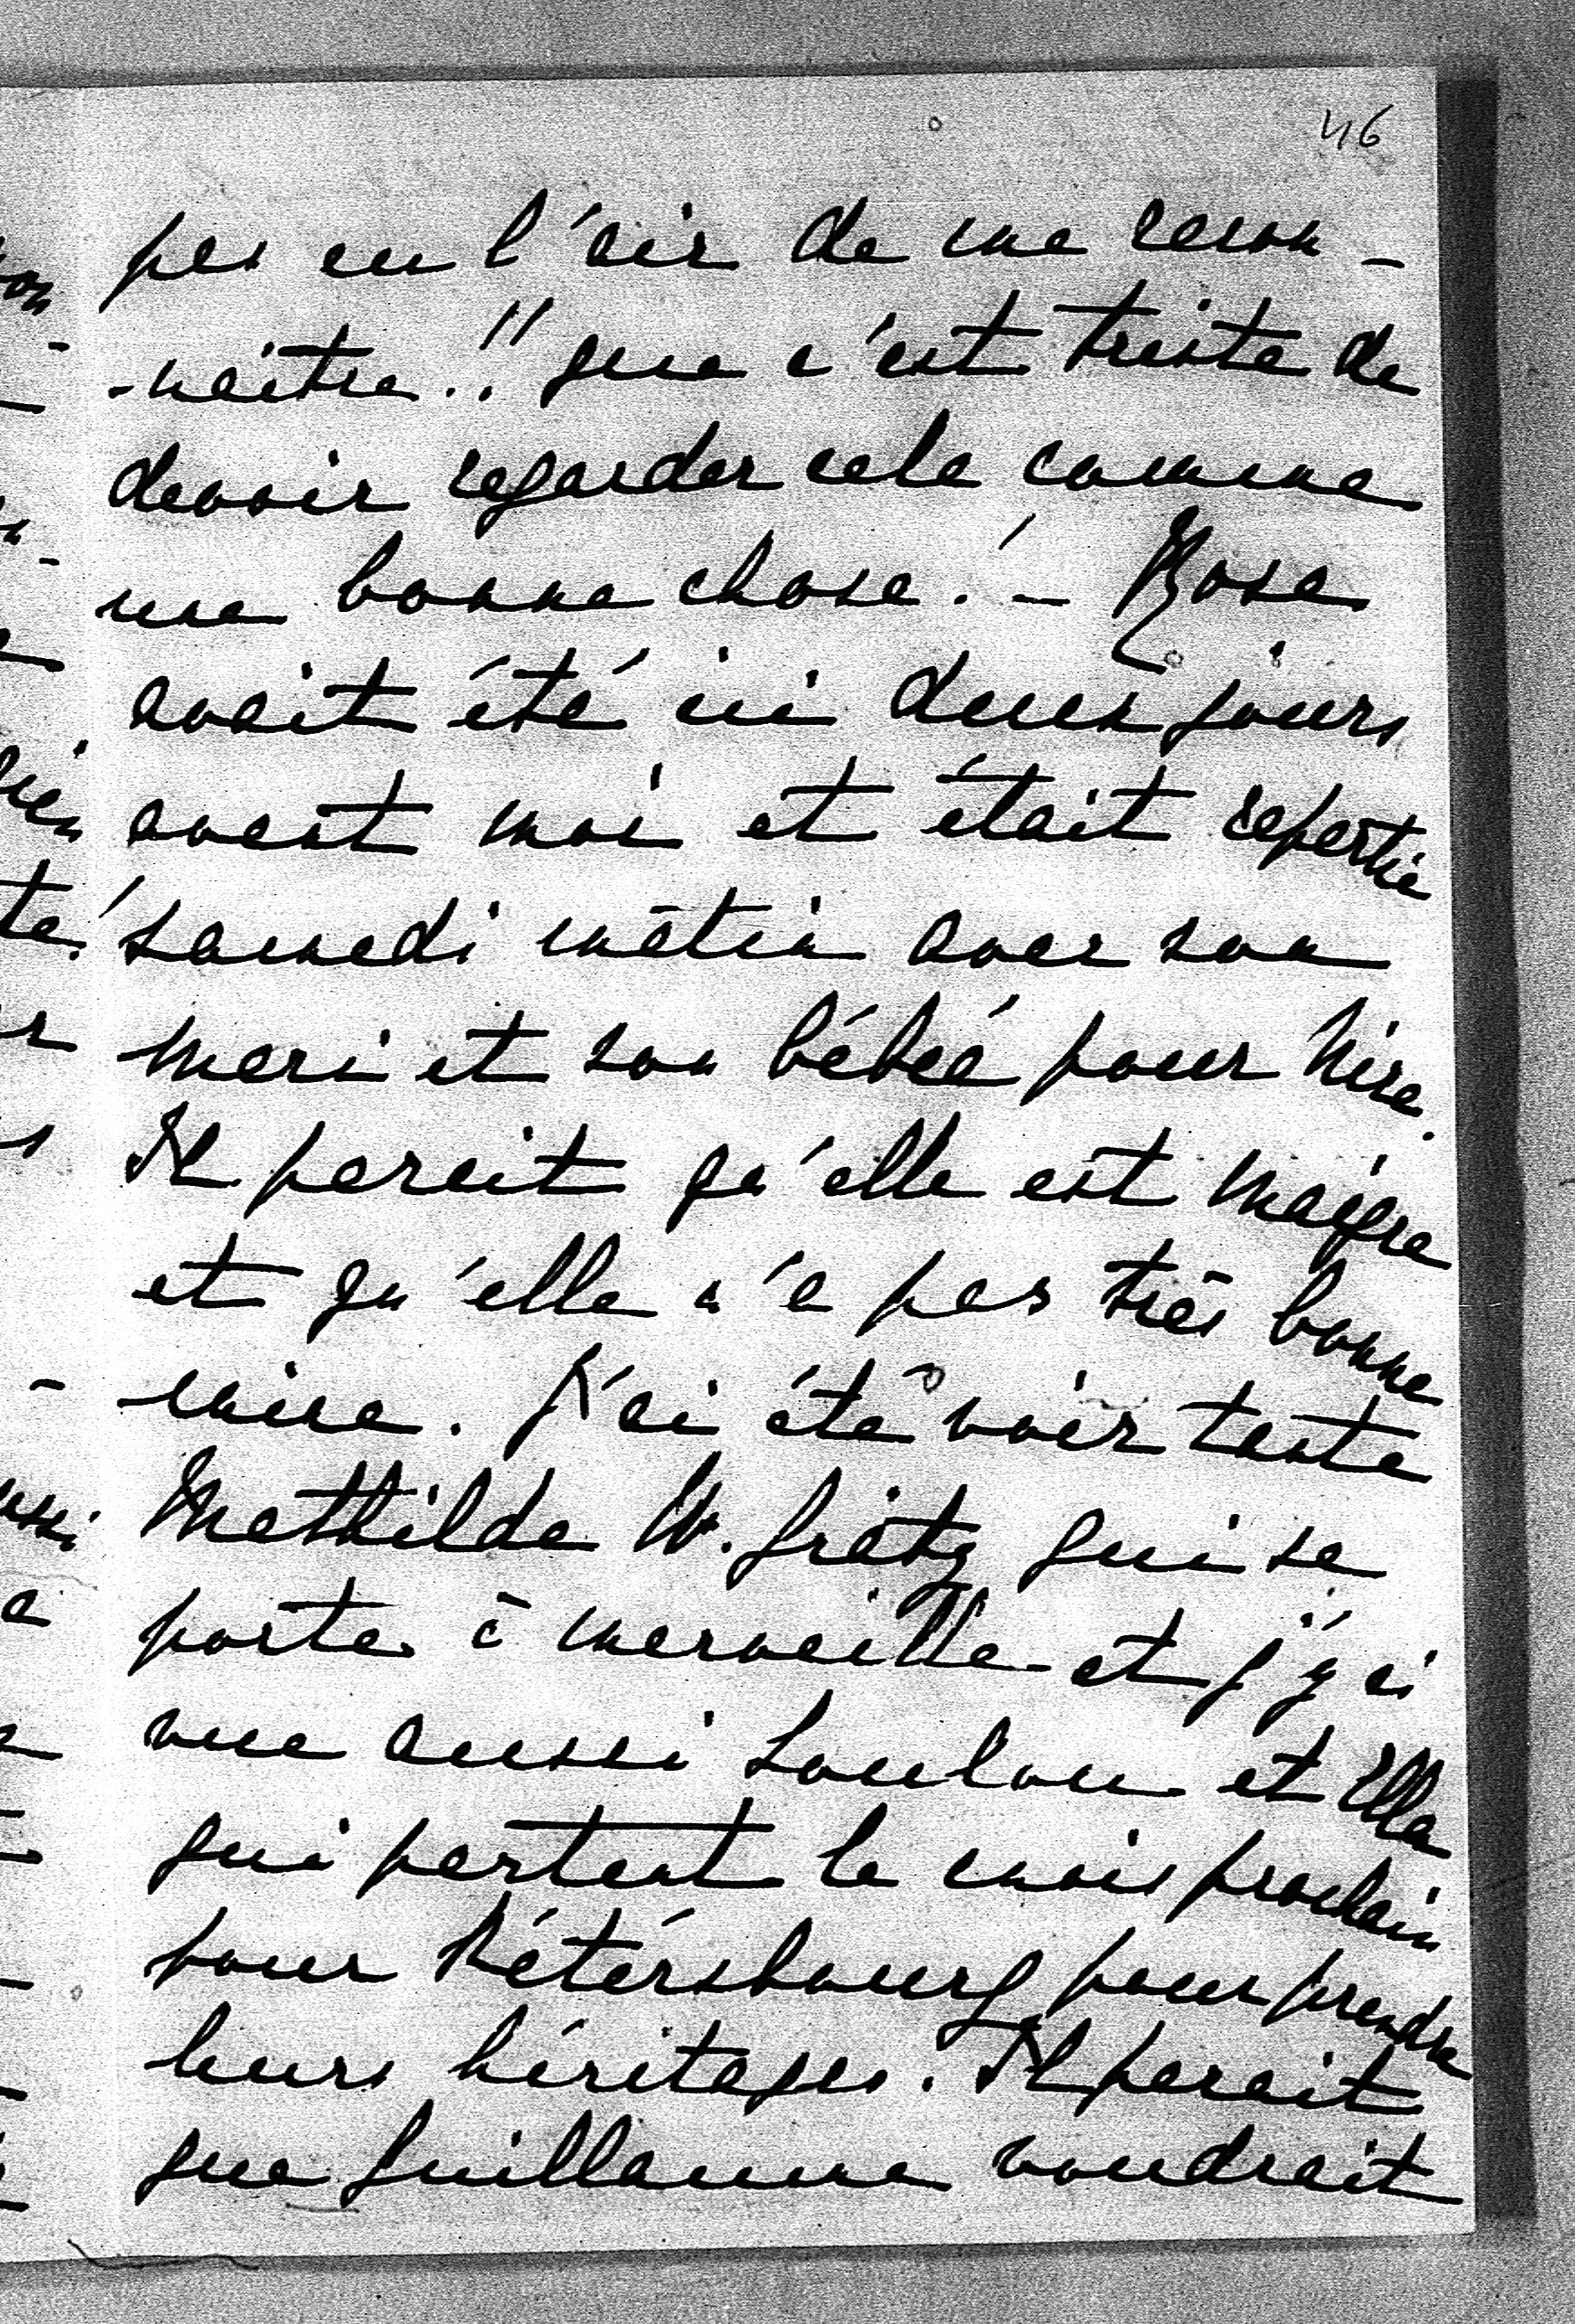 46
pas eu l'air de me recon-
-naître!! que c'est triste de
devoir regarder cela comme
une bonne chose! - Rose
avait été ici deux jours
avant moi et était repartie
samedi mâtin avec son
mari et son bébé pour Nice.
Il parait qu'elle est maigre
et qu'elle n'a pas très bonne
mine. J'ai été voir tante
Mathilde W. Grätz qui se
porte à merveille et j'y ai
vue aussi Loulou et Ella
qui partent le mois prochain
pour Pétérsbourg pour prendre
leurs héritages. Il parait
que Guillaume voudrait